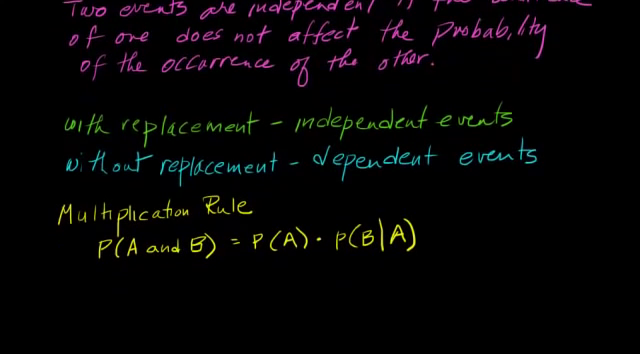 Two events are independent if the
of one does not affect the probability
of the occurrence of the other.
with replacement - independent events
without replacement - dependent events
Multiplication Rule
P(A and B) = P(A) · P(B|A)